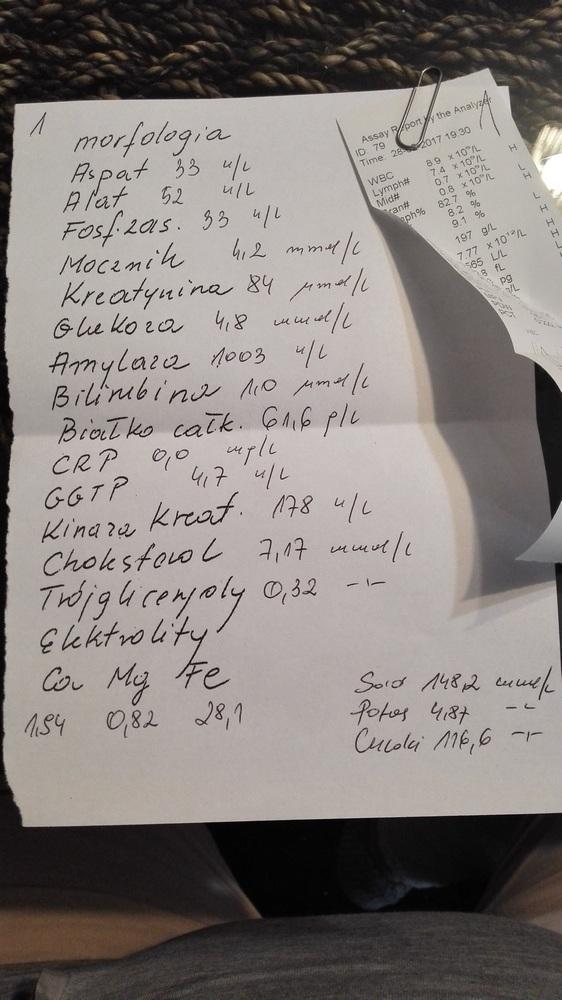 1
morfologia
Aspat 33 u/L
Alat 52 u/L
Fosf. zas. 33 u/L
Mocznik 4,2 mmol/L
Kreatynina 84 µmol/L
Glukoza 4,8 mmol/L
Amylaza 1003 u/L
Bilirubina 1,0 µmol/L
Białko całk. 61,6 g/L
CRP 0,0 mg/L
GGTP 4,7 u/L
Kinaza Kreat. 178 u/L
Cholesterol 7,17 mmol/L
Trójglicerydy 0,32 -"-
Elektrolity
Ca Mg Fe
1,94 0,82 28,1
Sód 148,2 mmol/L
Potas 4,87 -"-
Chlorki 116,6 -"-
Assay Report by the Analyzer
ID: 79
Time: 2017 19:30
WBC 8.9 x10⁹/L H
Lymph# 7.4 x10⁹/L
Mid# 0.7 x10⁹/L
Gran# 0.8 x10⁹/L
82.7 %
8.2 %
9.1 %
197 g/L
7.77 x10¹²/L
L/L
fL
pg